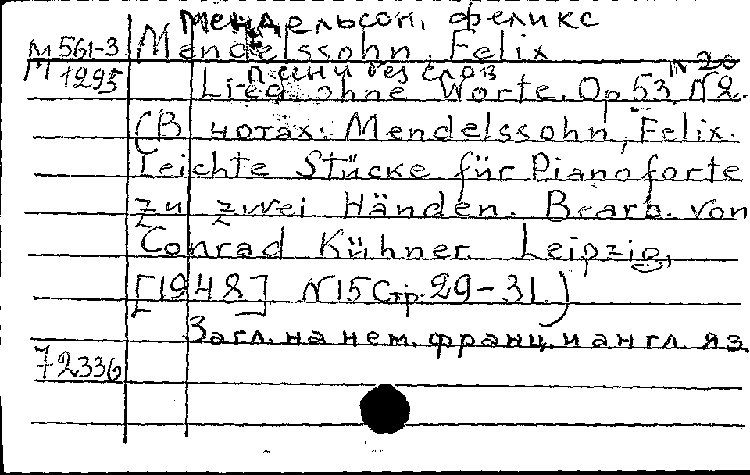 Мендельсон, феликс
М 561-3 Mendelssohn, Felix
М 1295 песни без слов N 20
Lied ohne Worte. Op. 53, N 2.
(В нотах: Mendelssohn, Felix.
Leichte Stücke für Pianoforte
zu zwei Händen. Bearb. von
Conrad Kühner. Leipzig,
[1948] N 15 Стр. 29-31.)
Загл. на нем. франц. и англ. яз
72336